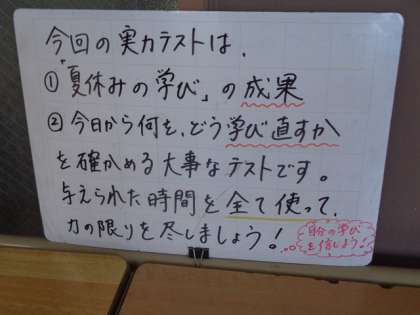 今回の実力テストは、
①「夏休みの学び」の成果
②今日から何を、どう学び直すか
を確かめる大事なテストです。
与えられた時間を全て使って、
力の限りを尽しましょう!
自分の学び
を信じよう!